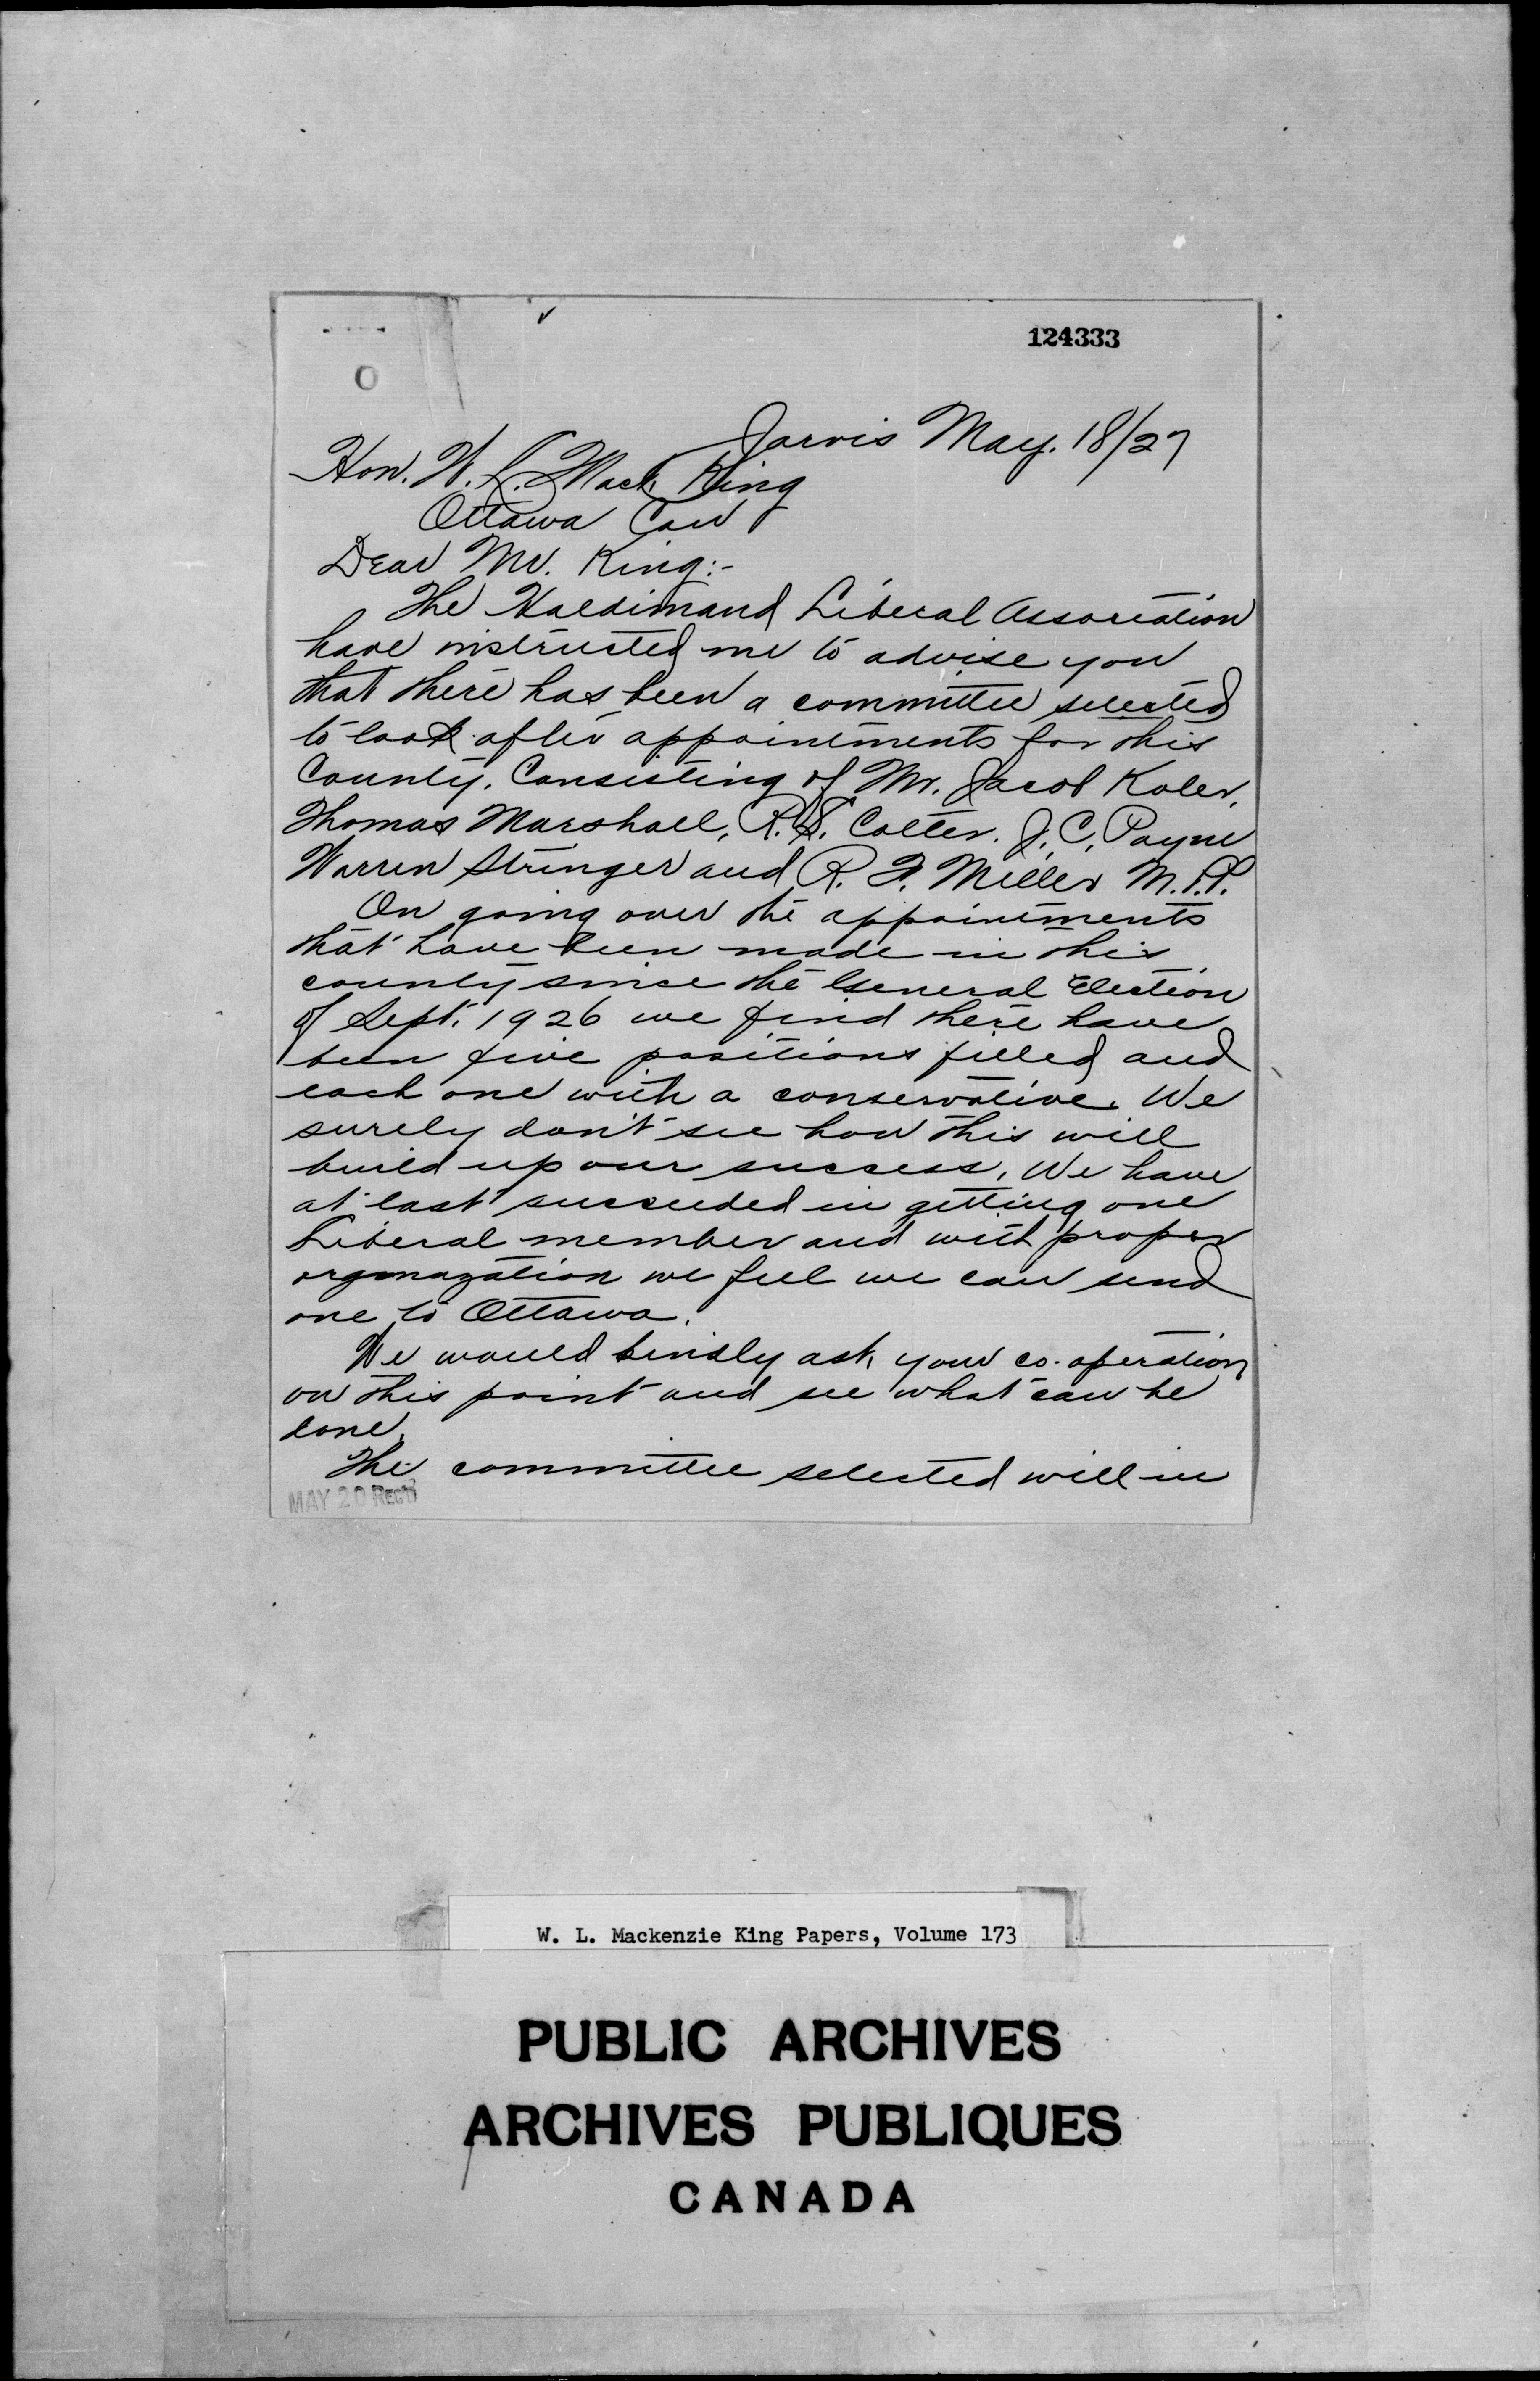 124333
Jarvis May. 18/27
Hon. W. L. Mack King
Ottawa Can
Dear Mr. King:-
The Haldimand Liberal Association
have instructed me to advise you
that there has been a committee selected
to look after appointments for this
County. Consisting of Mr. Jacob Kohler,
Thomas Marshall, R. S. Colter. J. C. Payne
Warren Stringer and R. F. Miller M.P.P.
On going over the appointments
that have been made in this
county since the General Election
of Sept. 1926 we find there have
been five positions filled and
each one with a conservative. We
surely don't see how this will
build up our success. We have
at last succeeded in getting one
Liberal member and with proper
orgonazation we feel we can send
one to Ottawa.
We would kindly ask your co-operation
on this point and see what can be
done.
The committee selected will in
MAY 20 REC'D
W. L. Mackenzie King Papers, Volume 173
PUBLIC ARCHIVES
ARCHIVES PUBLIQUES
CANADA